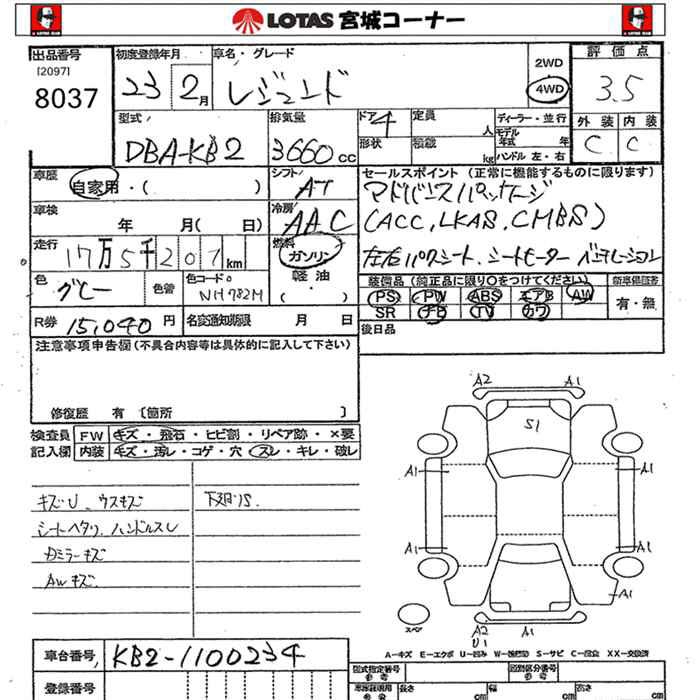 LOTAS 宮城コーナー
出品番号
[2097]
8037
初度登録年月
23 2月
車名・グレード
レジェンド
2WD
4WD
評価点
3.5
外装 内装
C C
型式
DBA-KB2
排気量
3660cc
ドア 4
定員
人
形状
積載
kg
ディーラー・並行
モデル年式 年
ハンドル 左・右
車歴
自家用・( )
シフト
AT
セールスポイント (正常に機能するものに限ります)
(ACC, LKAS, CMBS)
車検
年 月( 日)
冷房
AAC
走行
17万5千207km
燃料
ガソリン
軽油
・( )
色
グレー
色替
色コード
NH782M
装備品(純正品に限り○をつけてください)
新車保証書
PS PW ABS エアB AW
SR TV カワ
有・無
R券 15,040円
名変通知期限 月 日
後日品
注意事項申告欄(不具合内容等は具体的に記入して下さい)
修復歴 有 [箇所 ]
検査員記入欄
FW キズ・飛石・ヒビ割・リペア跡・×要
内装 キズ・汚レ・コゲ・穴 スレ・キレ・破レ
キズU ウスキズ
下廻りS
シートヘタリ、ハンドルスレ
AWキズ
A2 A1
S1
A1 A1
A1 A1
A1
スペア
A2 A1
U1
A-キズ E-エクボ U-凹み W-補修跡 S-サビ C-腐食 XX-交換済
車台番号 KB2-1100234
登録番号
型式指定番号
参考
類別区分番号
参考
長さ cm
幅 cm
高さ cm